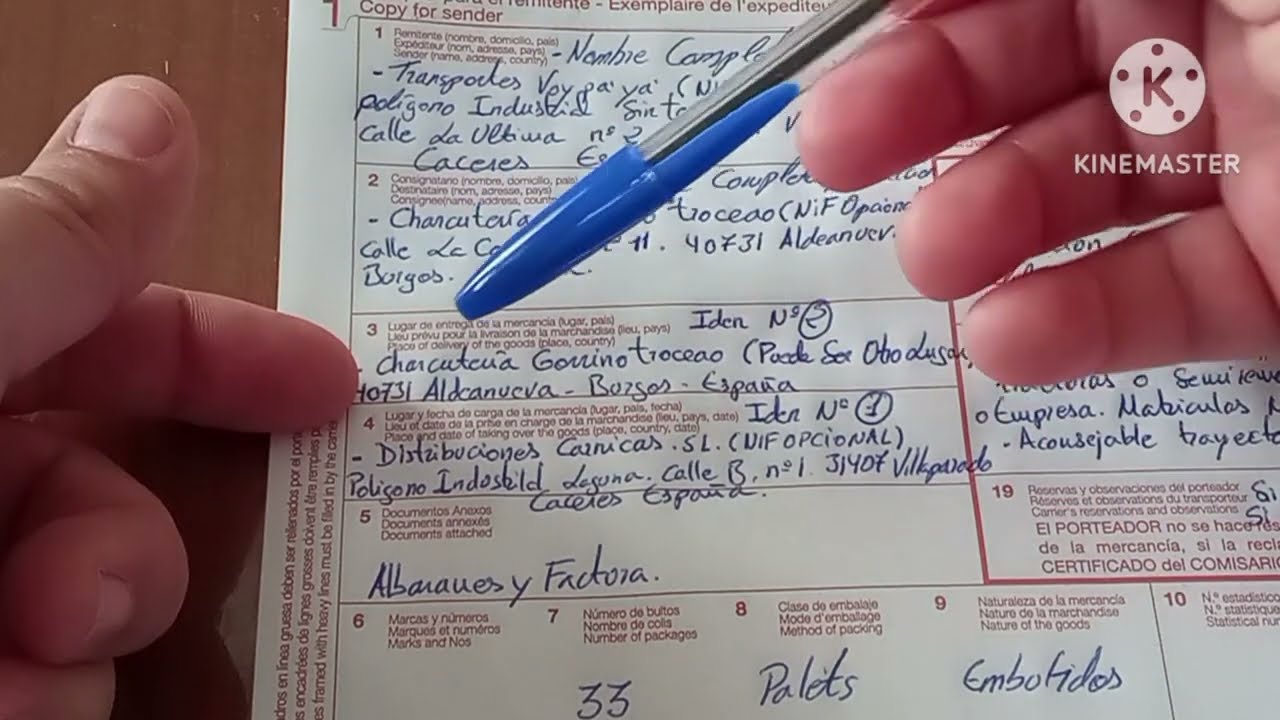 1
Copy for sender
el remitente - Exemplaire de l'expediteu
1 Remitente (nombre, domicilio, pais)
Expéditeur (nom, adresse, pays)
Sender (name, address, country)
- Nombre Comple
- Transportes Voy pa' ya' (Ni
polígono Industrial Sin
Calle La Ultima nº 2
Caceres Es
2 Consignatario (nombre, domicilio, pais)
Destinataire (nom, adresse, pays)
Consignee (name, address, count
Comple
- Charcutería troceao (NiF Opcion
Calle La 11. 40731 Aldeanuev.
Burgos.
3 Lugar de entrega de la mercancía (lugar, país)
Lieu prévu pour la livraison de la marchandise (lieu, pays)
Place of delivery of the goods (place, country)
Iden Nº 2
- Charcutería Gorrino troceao (Puede Ser Otro Lugar,
40731 Aldeanueva - Burgos - España
4 Lugar y fecha de carga de la mercancía (lugar, país, fecha)
Lieu et date de la prise en charge de la marchandise (lieu, pays, date)
Place and date of taking over the goods (place, country, date)
Iden Nº 1
- Distribuciones Carnicas. SL. (NIF OPCIONAL)
Poligono Indostild Laguna. Calle B, nº1. 31407 Villaparado
Caceres España.
5 Documentos Anexos
Documents annexés
Documents attached
Albaranes y Factora.
6 Marcas y números
Marques et numéros
Marks and Nos
7 Número de bultos
Nombre de colis
Number of packages
33
8 Clase de embalaje
Mode d'emballage
Method of packing
Palets
9 Naturaleza de la mercancía
Nature de la marchandise
Nature of the goods
Embotidos
10 N.º estadístico
N.º statistique
Statistical nu
o Semirem
o Empresa. Matriculas
- Aconsejable trayect
19 Reservas y observaciones del porteador
Réserves et observations du transporteur
Carrier's reservations and observations
Si
El PORTEADOR no se hace res
de la mercancía, si la recla
CERTIFICADO del COMISARI
dros en línea gruesa deben ser rellenados por el por
es encadrées de lignes grosses doivent être remplies p
es framed with heavy lines must be filled in by the carrier
K
KINEMASTER